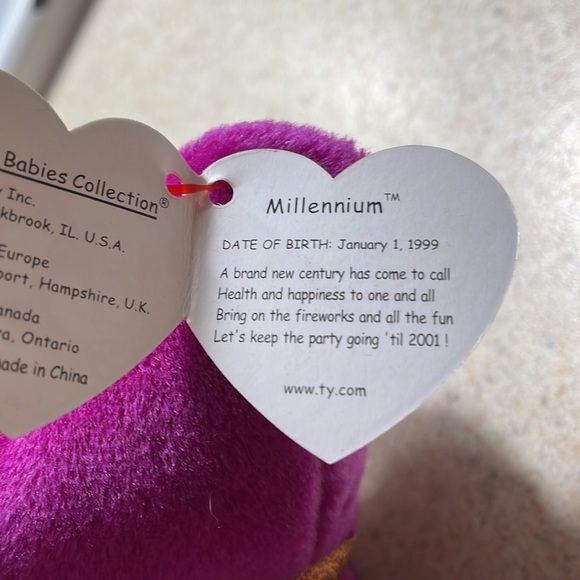 Babies Collection®
Inc.
kbrook, IL. U.S.A.
Europe
port, Hampshire, U.K.
anada
a, Ontario
ade in China
Millennium™
DATE OF BIRTH: January 1, 1999
A brand new century has come to call
Health and happiness to one and all
Bring on the fireworks and all the fun
Let's keep the party going 'til 2001 !
www.ty.com